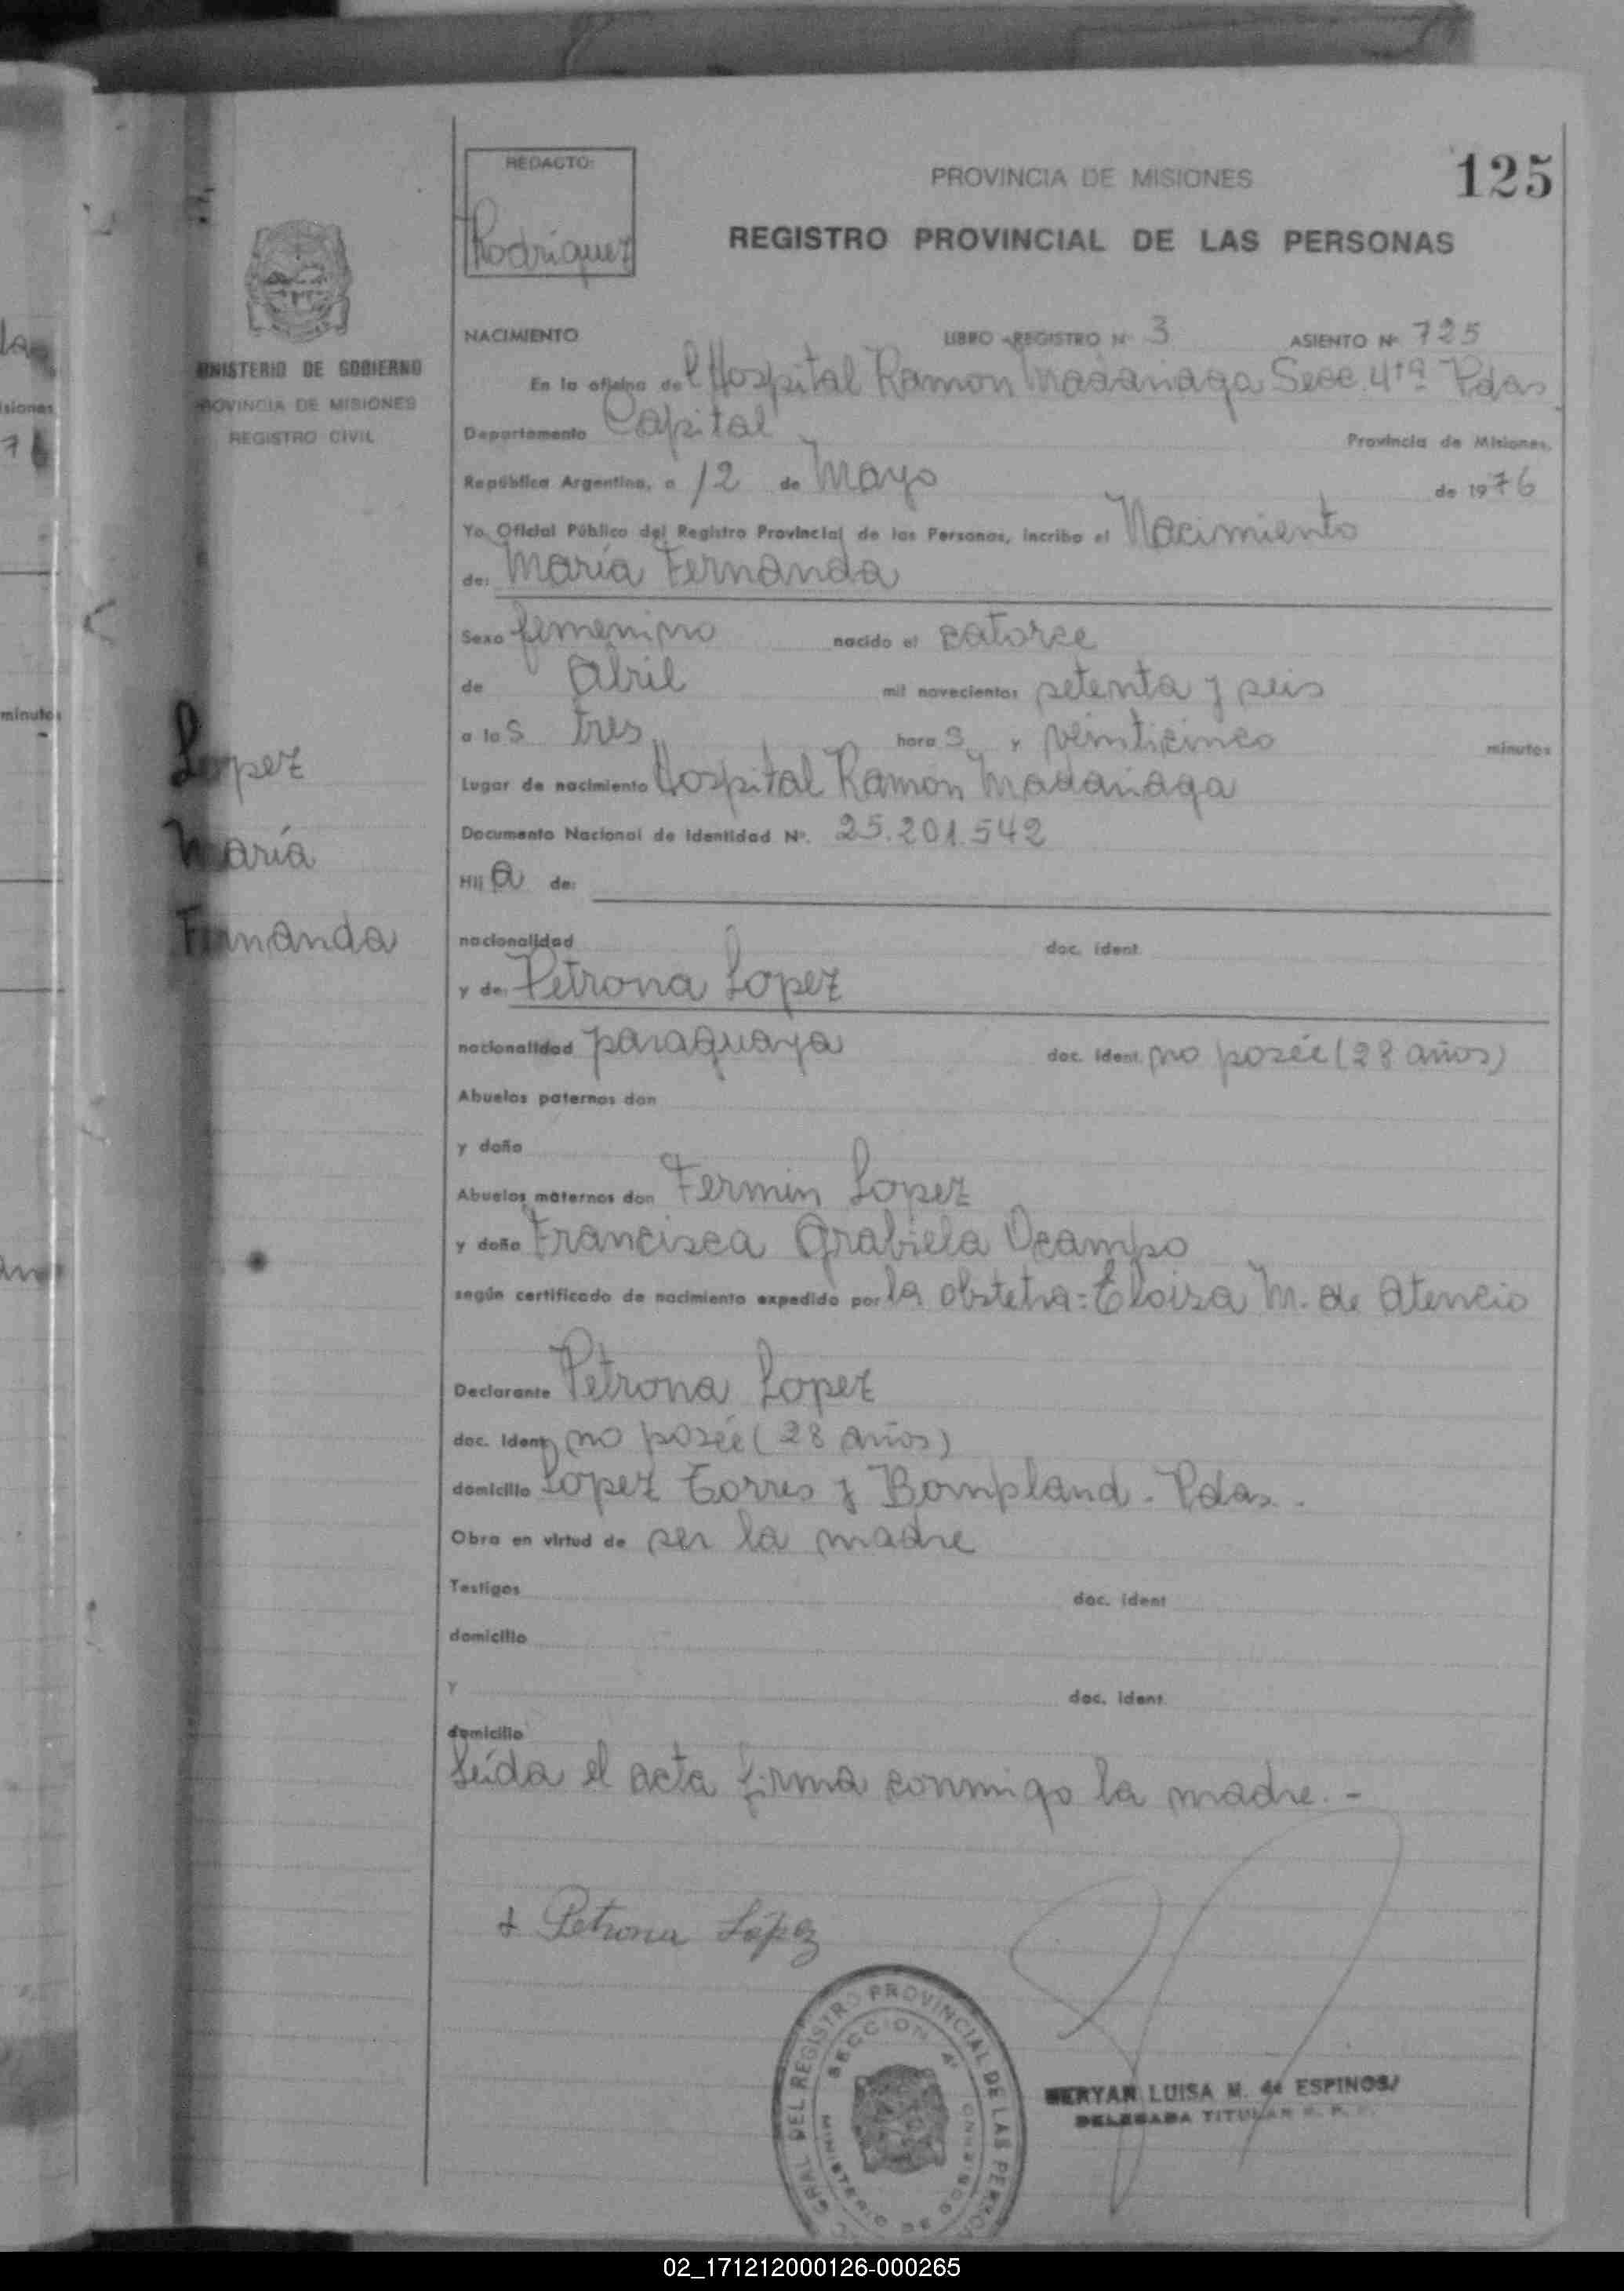 REDACTO:
Rodriguez
PROVINCIA DE MISIONES
125
REGISTRO PROVINCIAL DE LAS PERSONAS
MINISTERIO DE GOBIERNO
PROVINCIA DE MISIONES
REGISTRO CIVIL
NACIMIENTO LIBRO -REGISTRO Nº 3 ASIENTO Nº 725
En la oficina del Hospital Ramon Madariaga Secc. 4ta Pdas
Departamento Capital Provincia de Misiones,
República Argentina, a 12 de Mayo de 1976
Yo, Oficial Público del Registro Provincial de las Personas, incribo el Nacimiento
de: María Fernanda
Sexo femenino nacido el catorce
de Abril mil novecientos setenta y seis
a las tres horas y veinticinco minutos
Lugar de nacimiento Hospital Ramon Madariaga
Documento Nacional de Identidad Nº. 25.201.542
Hija de:
nacionalidad doc. ident.
y de: Petrona Lopez
nacionalidad paraguaya doc. ident. no posée (28 años)
Abuelos paternos don
y doña
Abuelos maternos don Fermin Lopez
y doña Francisca Grabiela Ocampo
según certificado de nacimiento expedido por la obstetra= Eloisa M. de Atencio
Declarante Petrona Lopez
doc. ident. no posée (28 años)
domicilio Lopez Torres y Bompland. Pdas.
Obra en virtud de ser la madre
Testigos doc. ident
domicilio
Y doc. ident.
domicilio
Leída el acta firma conmigo la madre.-
Lopez
María
Fernanda
Petrona López
GRAL DEL REGISTRO PROVINCIAL DE LAS PERSO
SECCION 4ª
MINISTERIO DE GOBIERNO
MERYAN LUISA M. de ESPINOSA
DELEGADA TITULAR R. P. P.
isiones
76
minutos
02_171212000126-000265